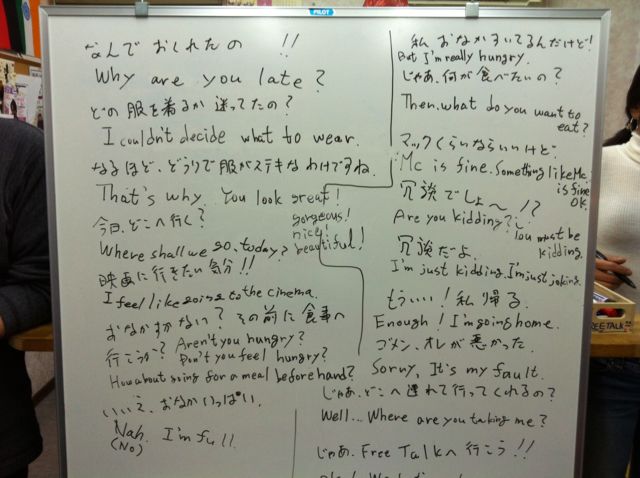 PILOT
なんで おくれたの !!
Why are you late?
どの服を着るか 迷ってたの?
I couldn't decide what to wear.
なるほど、どうりで服がステキなわけですね.
That's why. You look great!
gorgeous!
nice!
beautiful!
今日、どこへ行く?
Where shall we go, today?
映画に行きたい気分!!
I feel like going to the cinema.
おなかすかない? その前に食事へ
行こうか? Aren't you hungry?
Don't you feel hungry?
How about going for a meal beforehand?
いいえ、おなかいっぱい.
Nah. I'm full.
(No)
私 おなかすいてるんだけど!
But I'm really hungry.
じゃあ、何が食べたいの?
Then, what do you want to
eat?
マックくらいならいいけど.
Mc is fine. Something like Mc
is fine
OK.
冗談でしょ〜!?
Are you kidding?
You must be
kidding.
冗談だよ.
I'm just kidding. I'm just joking.
もういい! 私 帰る.
Enough! I'm going home.
ゴメン、オレが悪かった.
Sorry, It's my fault.
じゃあ、どこへ連れて行ってくれるの?
Well... Where are you taking me?
じゃあ、Free Talkへ 行こう!!
REE TALK